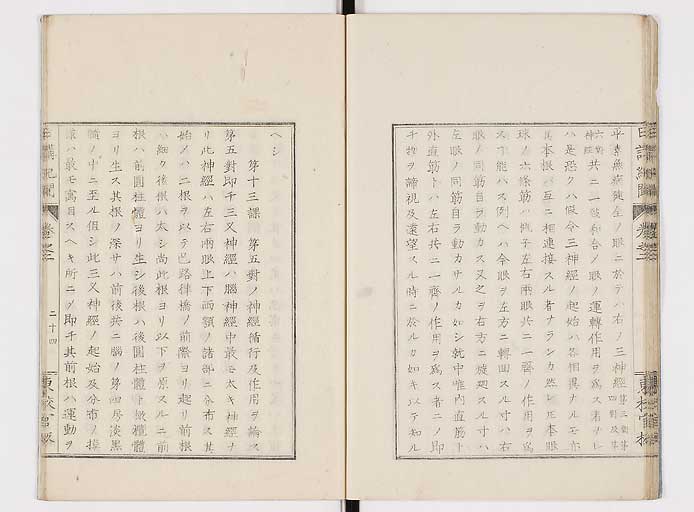 平素無病健全ノ眼ニ於テハ右ノ三神經第三對第四對及第
六對神經共ニ一致和合ノ眼ノ運轉作用ヲ爲ス者ノシ
ハ是恐クハ假令三神經ノ起始ハ各相異ナルモ亦
其本根ハ互ニ相連接スル者ナランカ然レ𪜈本眼
球ノ六條筋ハ恒子左右兩眼共ニ一齊ノ作用ヲ爲
ス𪜈能ハス例ヘハ今眼ヲ左方ニ轉回スル寸ハ右
眼ノ同筋自ラ動カス又之ヲ右方ニ旋廻スル寸ハ
左眼ノ同筋自ラ動カサルカ如シ就中唯内直筋ト
外直筋トハ左右共ニ一齊ノ作用ヲ爲ス者ニノ即
千物ヲ諦視及遠望スル時ニ於ルカ如キ以テ知ル
ヘシ
第十三課 第五對ノ神經循行及作用ヲ論ス
第五對即千三叉神經ハ腦神經中最モ太キ神經ナ
リ此神經ハ左右兩眼上下両顎ノ諸部ニ分布ス其
始メハ二根ヲ以テ巴路律橋ノ前際ヨリ起リ前根
ハ細ク後根ハ太シ尚此根ヨリ以下ヲ原スルニ前
根ハ前圓柱體ヨリ生シ後根ハ後圓柱體ト橄欖體
ヨリ生ス其根ノ深サハ前後共ニ腦ノ第四房淡黒
質ノ中ニ至ル但シ此三叉神經ノ起始及分布ノ模
樣ハ最モ寓目スヘキ所ニノ即千其前根ハ運動ヲ
日講紀聞
卷之三
二十四
東校官版